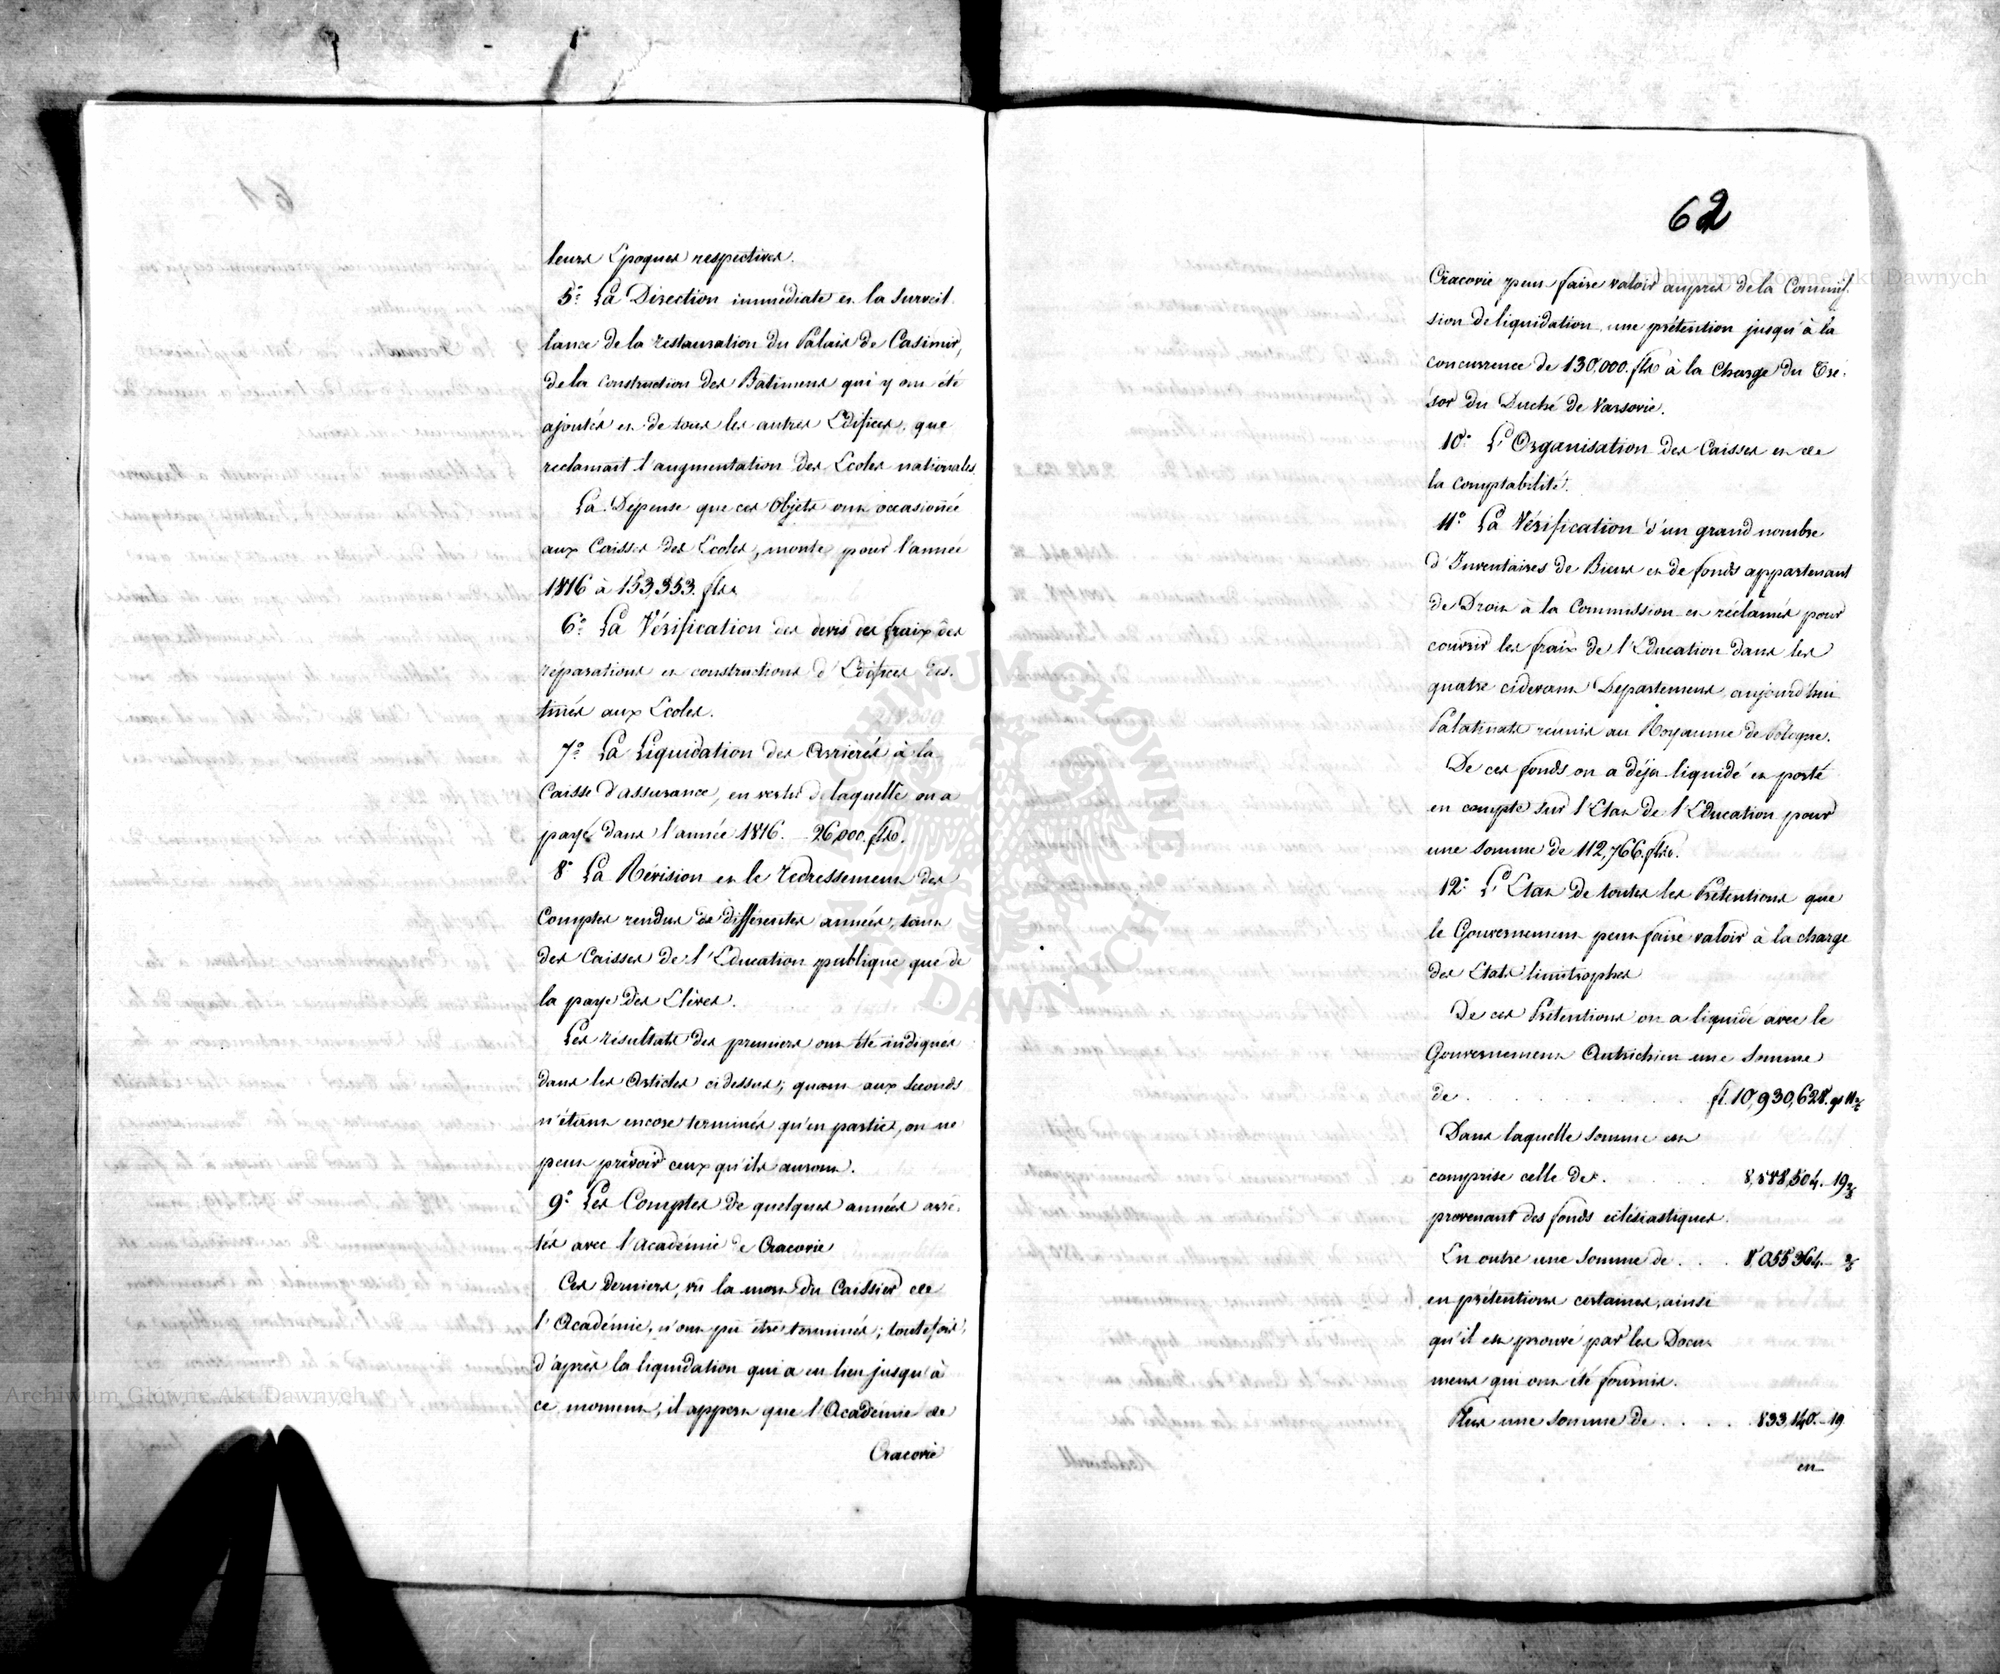 leurs Epoques respectives.
5.° La Direction immédiate et la surveil-
lance de la restauration du Palais de Casimir,
de la construction des Batimens qui y ont été
ajoutés et de tous les autres Edifices, que
reclamait l'augmentation des Ecoles nationales.
La Dépense que ces Objets ont occasionnée
aux Caisses des Ecoles, monte pour l'année
1816 à 153,353. flrs
6.° La Vérification des devis des fraix des
réparations et constructions d'Edifices des-
tinés aux Ecoles.
7.° La Liquidation des Arrierés à la
Caisse d'assurance, en vertu de laquelle on a
payé dans l'année 1816. 26,000. flrs.
8° La Révision et le redressement des
Comptes rendus de différentes années, tant
des Caisses de l'Education publique que de
la paye des Elèves.
Les résultats des premiers ont été indiqués
dans les Articles cidessus; quant aux seconds
n'étant encore terminés qu'en partie, on ne
peut prévoir ceux qu'ils auront.
9.° Les Comptes de quelques années arrê-
tés avec l'Académie de Cracovie
Ces derniers, vû la mort du Caissier de
l'Académie, n'ont pu être terminés; toutefois,
d'après la liquidation qui a eu lieu jusqu'à
ce moment, il appert que l'Académie de
Cracovie
62
Cracovie peut faire valoir auprès de la Commis-
sion de liquidation une prétention jusqu'à la
concurrence de 130,000. flrs à la Charge du Tré-
sor du Duché de Varsovie.
10.° L'Organisation des Caisses et de
la comptabilité.
11.° La Vérification d'un grand nombre
d'Inventaires de Biens et de fonds appartenant
de Droit à la Commission et réclamés pour
couvrir les fraix de l'Education dans les
quatre cidevant Départemens, aujourd'hui
Palatinats réunis au Royaume de Pologne.
De ces fonds on a déja liquidé et porté
en compte sur l'Etat de l'Education pour
une somme de 112,766. flrs.
12.° L'Etat de toutes les Prétentions que
le Gouvernement peut faire valoir à la charge
des Etats limitrophes
De ces Prétentions on a liquidé avec le
Gouvernement Autrichien une somme
de . . . . . . fl. 10,930,628. gr 11
Dans laquelle somme est
comprise celle de . 8,588,504. 19
provenant des fonds eclésiastiques.
En outre une somme de . . . 8,055,364.
en prétentions certaines, ainsi
qu'il est prouvé par les Docu-
mens qui ont été fournis.
Plus une somme de . . . . 833,140. 19
en
Archiwum Główne Akt Dawnych
Archiwum Główne Akt Dawnych
ARCHIWUM GŁÓWNE AKT DAWNYCH